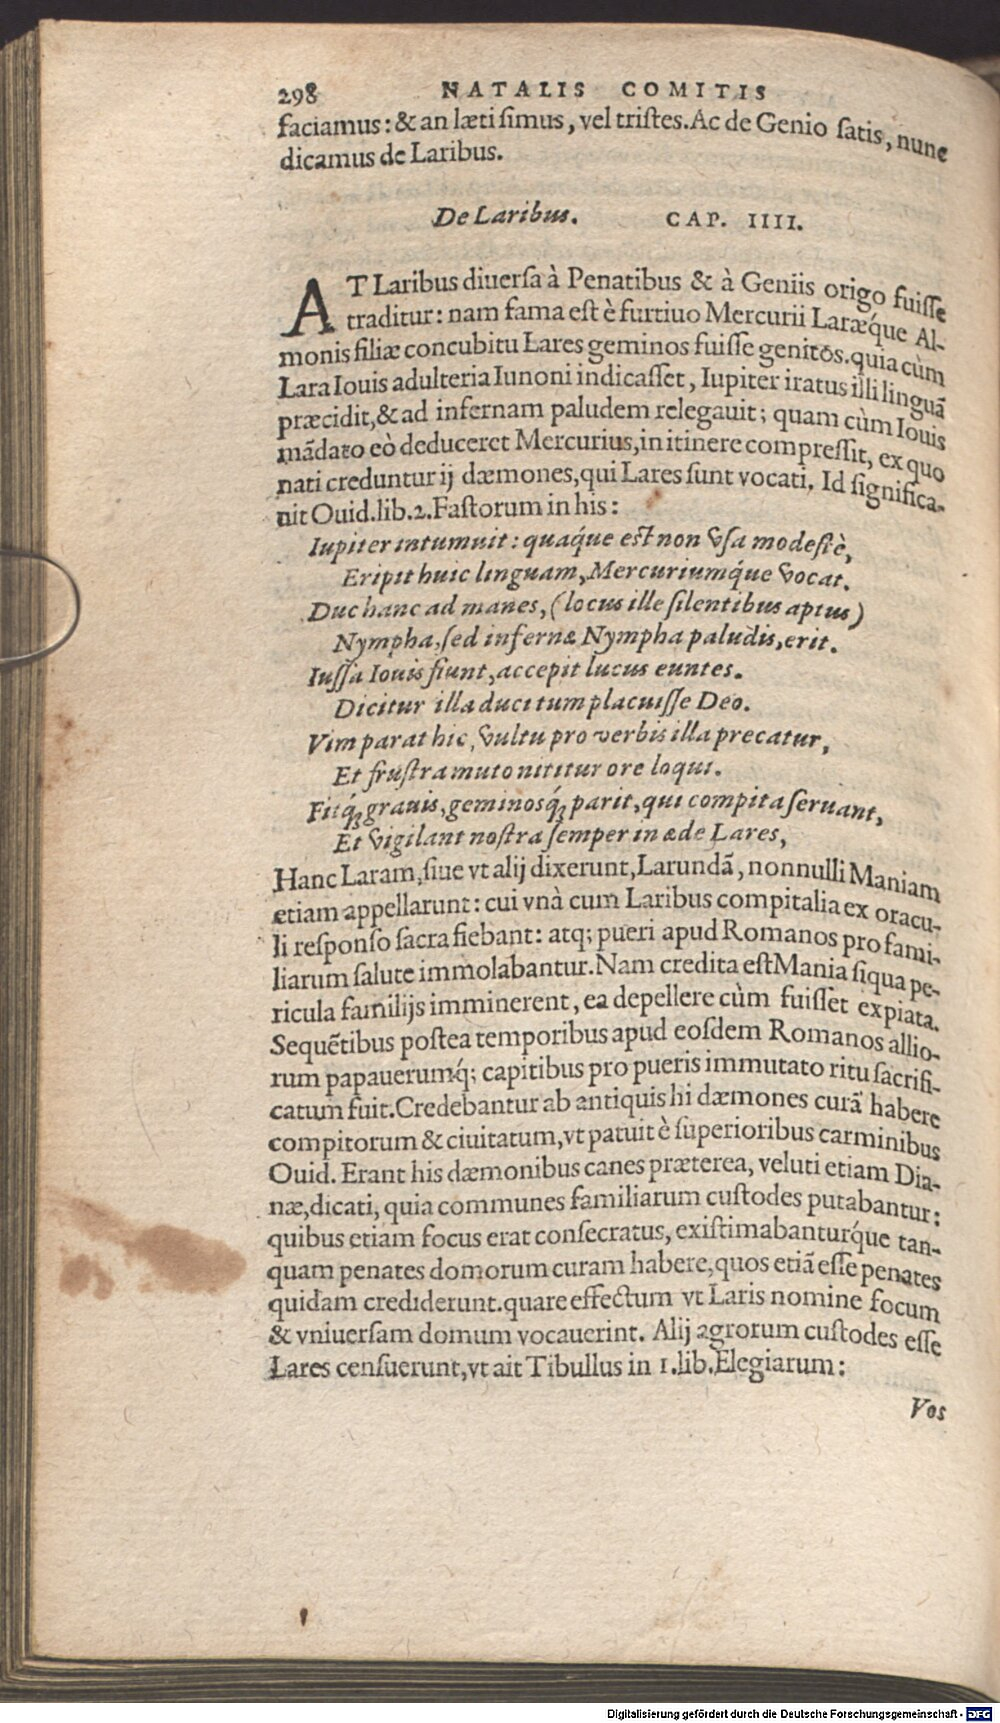 298 NATALIS COMITIS
faciamus: & an læti simus, vel tristes. Ac de Genio satis, nunc
dicamus de Laribus.
De Laribus. CAP. IIII.
AT Laribus diuersa à Penatibus & à Geniis origo fuisse
traditur: nam fama est è furtiuo Mercurii Laræq́ue Al-
monis filiæ concubitu Lares geminos fuisse genitos. quia cùm
Lara Iouis adulteria Iunoni indicasset, Iupiter iratus illi linguã
præcidit, & ad infernam paludem relegauit; quam cùm Iouis
mãdato eò deduceret Mercurius, in itinere compressit, ex quo
nati creduntur ij dæmones, qui Lares sunt vocati. Id significa-
uit Ouid. lib. 2. Fastorum in his:
Iupiter intumuit: quaq́ue est non vsa modestè,
Eripit huic linguam, Mercuriumq́ue vocat.
Duc hanc ad manes, (locus ille silentibus aptus)
Nympha, sed infernæ Nympha paludis, erit.
Iussa Iouis fiunt, accepit lucus euntes.
Dicitur illa duci tum placuisse Deo.
Vim parat hic, vultu pro verbis illa precatur,
Et frustra muto nititur ore loqui.
Fitq́; grauis, geminosq́; parit, qui compita seruant,
Et vigilant nostra semper in æde Lares,
Hanc Laram, siue vt alij dixerunt, Larundã, nonnulli Maniam
etiam appellarunt: cui vnà cum Laribus compitalia ex oracu-
li responso sacra fiebant: atq; pueri apud Romanos pro fami-
liarum salute immolabantur. Nam credita est Mania siqua pe-
ricula familijs imminerent, ea depellere cùm fuisset expiata.
Sequẽtibus postea temporibus apud eosdem Romanos allio-
rum papauerumq́; capitibus pro pueris immutato ritu sacrifi-
catum fuit. Credebantur ab antiquis hi dæmones curã habere
compitorum & ciuitatum, vt patuit è superioribus carminibus
Ouid. Erant his dæmonibus canes præterea, veluti etiam Dia-
næ, dicati, quia communes familiarum custodes putabantur:
quibus etiam focus erat consecratus, existimabanturq́ue tan-
quam penates domorum curam habere, quos etiã esse penates
quidam crediderunt. quare effectum vt Laris nomine focum
& vniuersam domum vocauerint. Alij agrorum custodes esse
Lares censuerunt, vt ait Tibullus in 1. lib. Elegiarum:
Vos
Digitalisierung gefördert durch die Deutsche Forschungsgemeinschaft - DFG